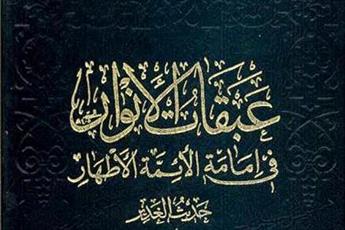 عبقات الأنوار
في إمامة الأئمة الأطهار
حديث الغدير